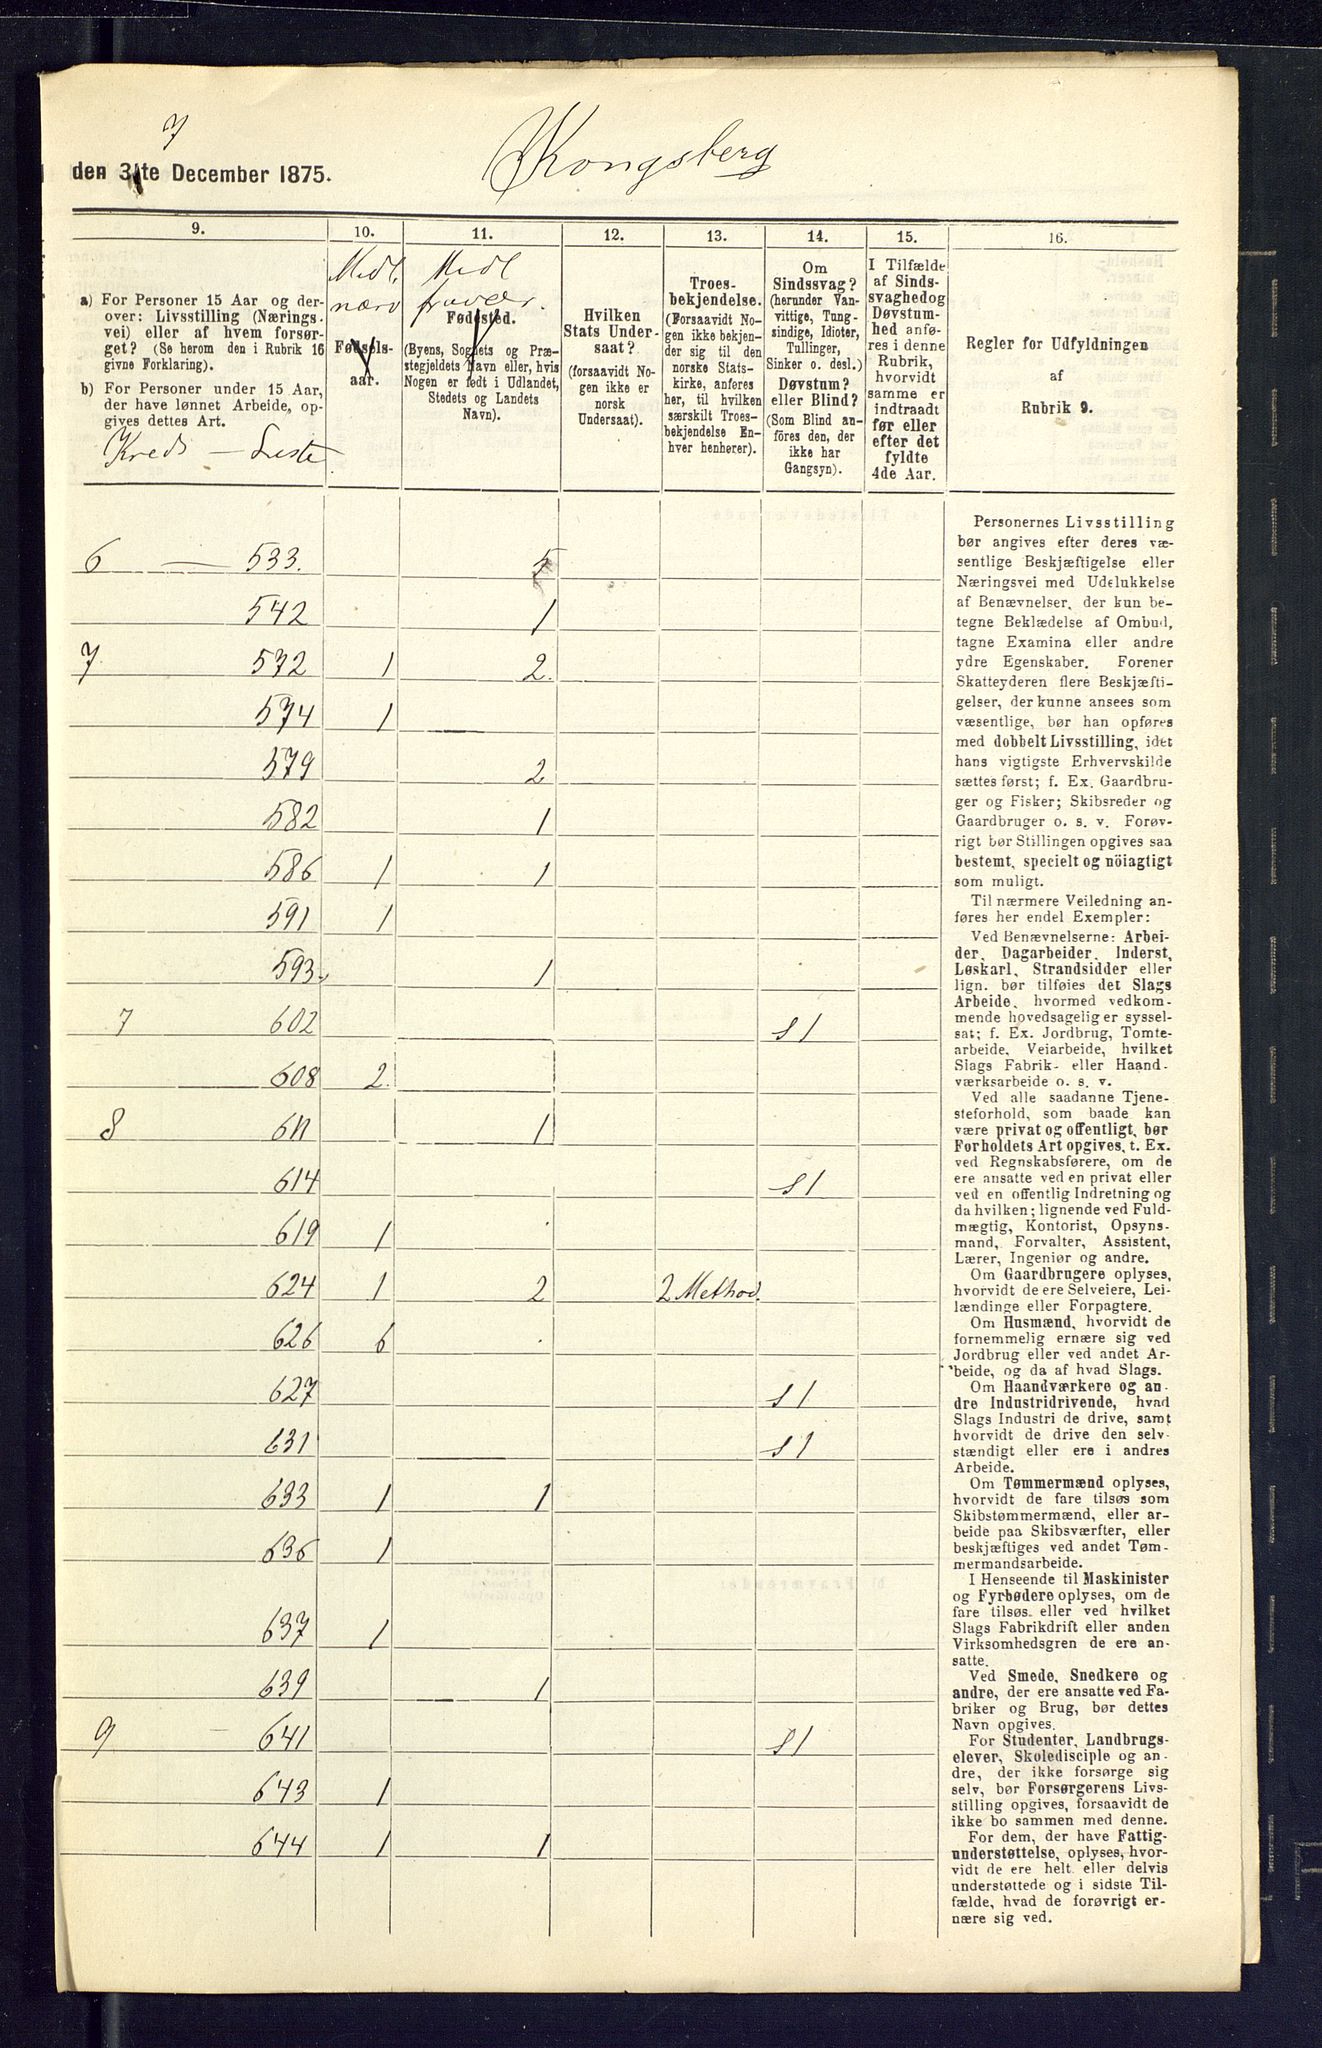 7
den 31te December 1875.
Kongsberg
9.
10.
11.
12.
13.
14.
15.
16.
a) For Personer 15 Aar og der-
over: Livsstilling (Nærings-
vei) eller af hvem forsør-
get? (Se herom den i Rubrik 16
givne Forklaring).
b) For Personer under 15 Aar,
der have lønnet Arbeide, op-
gives dettes Art.
Kreds — Liste
Midl.
nærv
Fødsels-
aar.
Midl
fravær.
Fødested.
(Byens, Sognets og Præ-
stegjeldets Navn eller, hvis
Nogen er født i Udlandet,
Stedets og Landets
Navn).
Hvilken
Stats Under-
saat?
(forsaavidt No-
gen ikke er
norsk
Undersaat).
Troes-
bekjendelse.
(Forsaavidt No-
gen ikke bekjen-
der sig til den
norske Stats-
kirke, anføres
her, til hvilken
særskilt Troes-
bekjendelse En-
hver henhører).
Om
Sindssvag?
(herunder Van-
vittige, Tung-
sindige, Idioter,
Tullinger,
Sinker o. desl.)
Døvstum?
eller Blind?
(Som Blind an-
föres den, der
ikke har
Gangsyn).
I Tilfælde
af Sinds-
svaghed og
Døvstum-
hed anfø-
res i denne
Rubrik,
hvorvidt
samme er
indtraadt
før eller
efter det
fyldte
4de Aar.
Regler for Udfyldningen
af
Rubrik 9.
6 — 533. 5
542 1
7 572 1 2.
574 1
579 2
582 1
586 1 1
591 1
593. 1
7 602 S 1
608 2.
8 611 1
614 S 1
619 1
624 1 2 2 Method.
626 6
627 S 1
631 S 1
633 1 1
636 1
637 1
639 1
9 — 641 S 1
643 1
644 1 1
Personernes Livsstilling
bør angives efter deres væ-
sentlige Beskjæftigelse eller
Næringsvei med Udelukkelse
af Benævnelser, der kun be-
tegne Beklædelse af Ombud,
tagne Examina eller andre
ydre Egenskaber. Forener
Skatteyderen flere Beskjæfti-
gelser, der kunne ansees som
væsentlige, bør han opføres
med dobbelt Livsstilling, idet
hans vigtigste Erhvervskilde
sættes først; f. Ex. Gaardbru-
ger og Fisker; Skibsreder og
Gaardbruger o. s. v. Forøv-
rigt bør Stillingen opgives saa
bestemt, specielt og nöiagtigt
som muligt.
Til nærmere Veiledning an-
føres her endel Exempler:
Ved Benævnelserne: Arbei-
der, Dagarbeider, Inderst,
Løskarl, Strandsidder eller
lign. bør tilføies det Slags
Arbeide, hvormed vedkom-
mende hovedsagelig er syssel-
sat; f. Ex. Jordbrug, Tomte-
arbeide, Veiarbeide, hvilket
Slags Fabrik- eller Haand-
værksarbeide o. s. v.
Ved alle saadanne Tjene-
steforhold, som baade kan
være privat og offentligt, bør
Forholdets Art opgives, t. Ex.
ved Regnskabsførere, om de
ere ansatte ved en privat eller
ved en offentlig Indretning og
da hvilken; lignende ved Fuld-
mægtig, Kontorist, Opsyns-
mand, Forvalter, Assistent,
Lærer, Ingeniør og andre.
Om Gaardbrugere oplyses,
hvorvidt de ere Selveiere, Lei-
lændinge eller Forpagtere.
Om Husmænd, hvorvidt de
fornemmelig ernære sig ved
Jordbrug eller ved andet Ar-
beide, og da af hvad Slags.
Om Haandværkere og an-
dre Industridrivende, hvad
Slags Industri de drive, samt
hvorvidt de drive den selv-
stændigt eller ere i andres
Arbeide.
Om Tømmermænd oplyses,
hvorvidt de fare tilsøs som
Skibstømmermænd, eller ar-
beide paa Skibsværfter, eller
beskjæftiges ved andet Tøm-
mermandsarbeide.
I Henseende til Maskinister
og Fyrbødere oplyses, om de
fare tilsøs eller ved hvilket
Slags Fabrikdrift eller anden
Virksomhedsgren de ere an-
satte.
Ved Smede, Snedkere og
andre, der ere ansatte ved Fa-
briker og Brug, bør dettes
Navn opgives.
For Studenter, Landbrugs-
elever, Skoledisciple og an-
dre, der ikke forsørge sig
selv, bør Forsørgerens Livs-
stilling opgives, forsaavidt de
ikke bo sammen med denne.
For dem, der have Fattig-
understøttelse, oplyses, hvor-
vidt de ere helt eller delvis
understøttede og i sidste Til-
fælde, hvad de forøvrigt er-
nære sig ved.